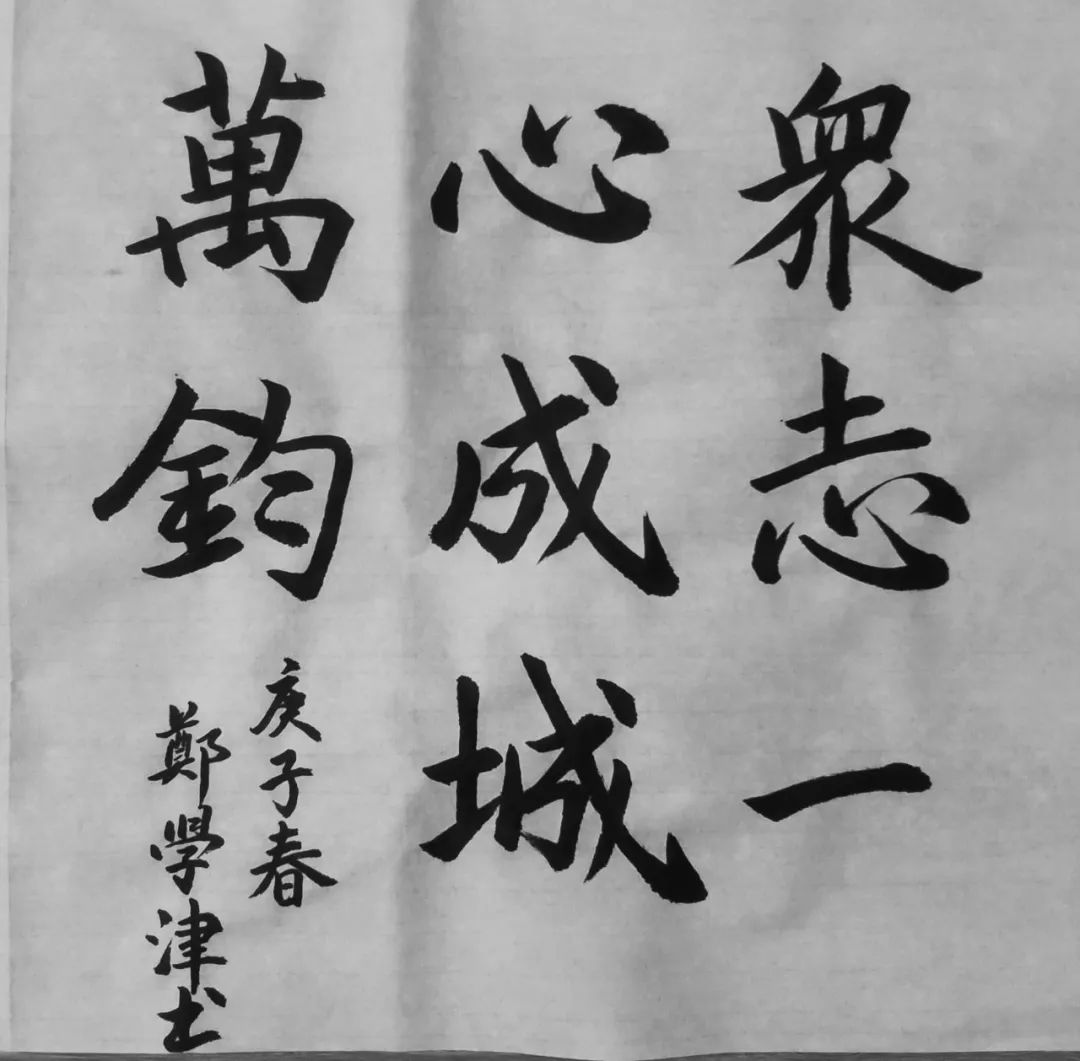 眾志一
心成城
萬鈞
庚子春
鄭學津书